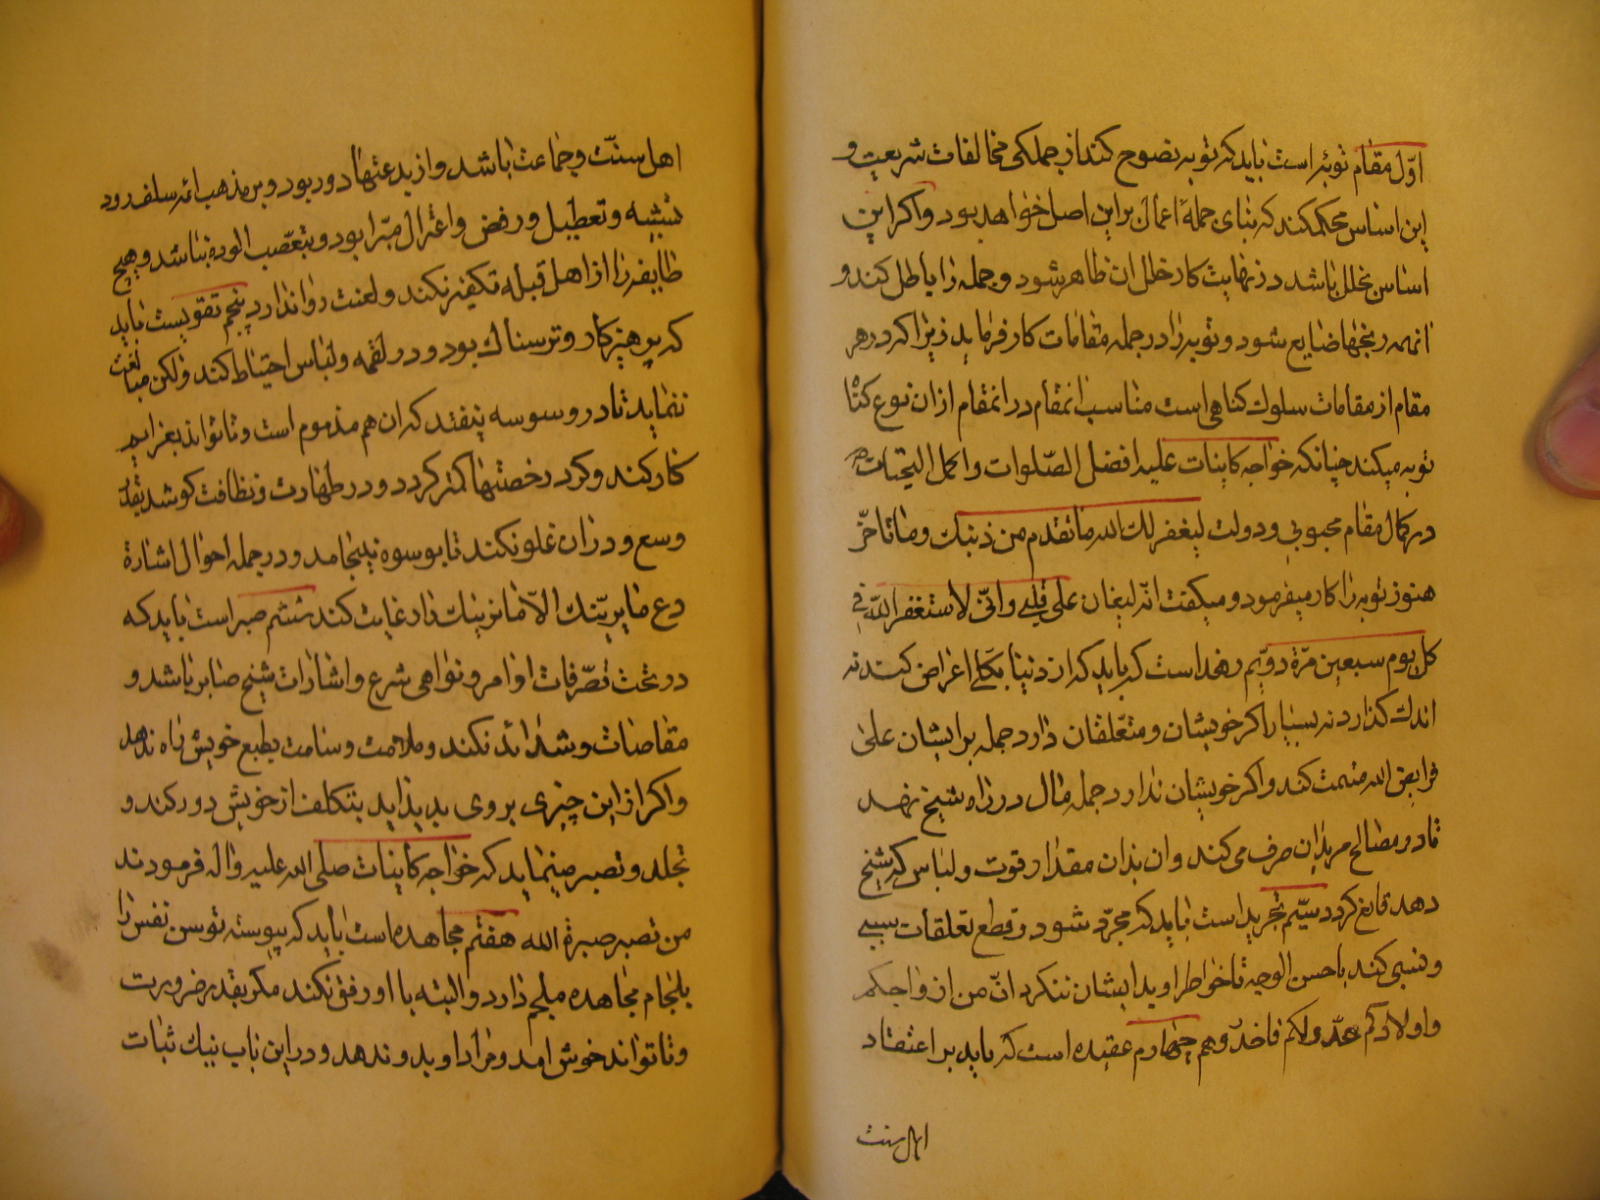 اوّل مقام توبه است بايد كه توبه نصوح كند از جملكى مخالفات شريعت و
اين اساس محكم كند كه بناى جملهٔ اعمال بر اين اصل خواهد بود و اكر اين
اساس بخلل باشد در نهايت كار خلل ان ظاهر شود و جمله را باطل كند و
انهمه رنجها ضايع شود و توبه را در جمله مقامات كار فرمايد زيرا كه در هر
مقام از مقامات سلوك كناهى است مناسب انمقام در انمقام از ان نوع كناه
توبه ميكند چنانكه خواجه كاينات عليه افضل الصّلوات و اكمل التحيّات
در كمال مقام محبوبى و دولت ليغفر لك الله ما تقدم من ذنبك و ما تاخّر
هنوز توبه را كار ميفرمود و ميكفت انّه ليغان على قلبى و انّى لاستغفر اللّه فى
كل يوم سبعين مرّة دويّم زهد است كه بايد كه از دنيا بكلى اعراض كند نه
اندك كذارد نه بسيار اكر خويشان و متعلّقان دارد جمله بر ايشان على
فرايض الله قسمت كند و اكر خويشان ندارد جمله مال در راه شيخ نهد
تا در مصالح مريدان صرف مى كند و ان بدان مقدار قوت و لباس كه شيخ
دهد قانع كردد سيّم تجريد است بايد كه مجرّد شود و قطع تعلقات سببى
و نسبى كند باحسن الوجه تا خواطر او بدايشان ننكرد انّ من ازواجكم
و اولادكم عدّوا لكم فاحذروهم چهارم عقيده است كه بايد بر اعتقاد
اهل سنت
اهل سنّت و جماعت باشد و از بدعتها دور بود و بر مذهب ائمه سلف رود
تشبيه و تعطيل و رفض و اعتزال مبّرا بود و بتعصّب الوده نباشد و هيچ
طايفه را از اهل قبله تكفير نكند و لعنت روا ندارد پنجم تقويست بايد
كه پرهيزكار و ترسناك بود و در لقمه و لباس احتياط كند و لكن مبالغت
ننمايد تا در وسوسه نيفتد كه ان هم مذموم است و تا تواند بعزايم
كار كند و كرد رخصتها كمتر كردد و در طهارت و نظافت كوشد بقدر
وسع و در ان غلو نكند تا بوسوسه نينجامد و در جمله احوال اشارة
دع ما يريبك الا ما لا يريبك را رعايت كند ششم صبر است بايد كه
در تحت تصّرفات اوامر و نواهى شرع و اشارات شيخ صابر باشد و
مقاصات و شدايد نكند و ملامت و سامت بطبع خويش راه ندهد
و اكر از اين چيزى بر وى بديدايد بتكلف از خويش دور كند و
تجلد و تصبر مينمايد كه خواجه كاينات صلى الله عليه و اله فرمودند
من تصبر صبرة الله هفتم مجاهده است بايد كه پيوسته توسن نفس را
بلجام مجاهده ملجم دارد و البته با او رفق نكند مكر بقدر ضرورت
و تا تواند خوش امد و مراد او بدو ندهد و در اين باب نيك ثبات